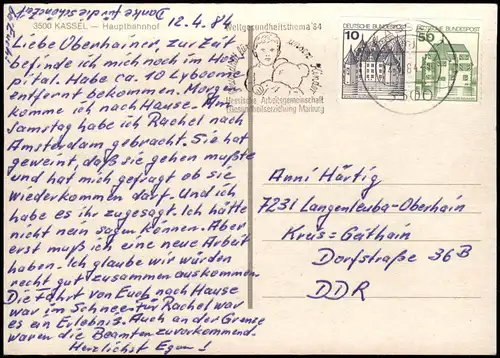 Danke für die schöne Zeit
bei Euch!
3500 KASSEL — Hauptbahnhof
12.4.84
Liebe Oberhainer, zur Zeit
befinde ich mich noch im Hos-
pital. Habe ca. 10 Lyboome
entfernt bekommen. Morgen
komme ich nach Hause. Am
Samstag habe ich Rachel nach
Amsterdam gebracht. Sie hat
geweint, daß sie gehen mußte
und hat mich gefragt ob sie
wiederkommen darf. Und ich
habe es ihr zugesagt. Ich hätte
nicht nein sagen können. Aber
erst muß ich eine neue Arbeit
haben. Ich glaube wir würden
recht gut zusammen auskommen.
Die Fahrt von Euch nach Hause
war im Schnee. Für Rachel war
es ein Erlebnis. Auch an der Grenze
waren die Beamten zuvorkommend.
Herzlichst Egon!
Weltgesundheitsthema '84
Hessische Arbeitsgemeinschaft
f. Gesundheitserziehung Marburg
DEUTSCHE BUNDESPOST
10
DEUTSCHE BUNDESPOST
50
3500
Anni Härtig
7231 Langenleuba-Oberhain
Kreis: Geithain
Dorfstraße 36B
DDR